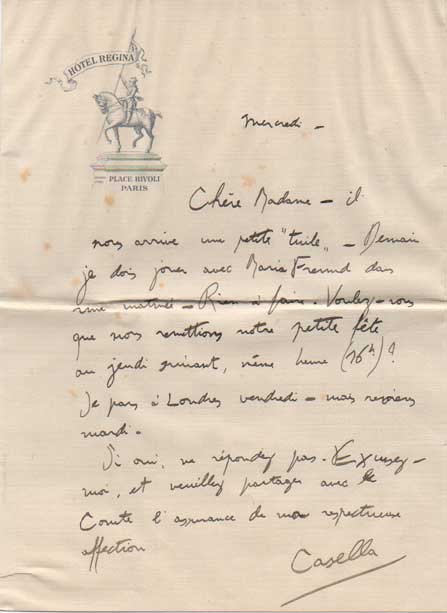 HÔTEL REGINA
PLACE RIVOLI
PARIS
Mercredi –
Chère Madame – il
nous arrive une petite "tuile" – Demain
je dois jouer avec Maria Freund dans
une matinée – Rien à faire. Voulez-vous
que nous remettions notre petite fête
au jeudi suivant, même heure (16h)?
Je pars à Londres vendredi – mais reviens
mardi.
Si oui, ne répondez pas. Excusez-
moi, et veuillez partager avec le
Comte l'assurance de ma respectueuse
affection
Casella